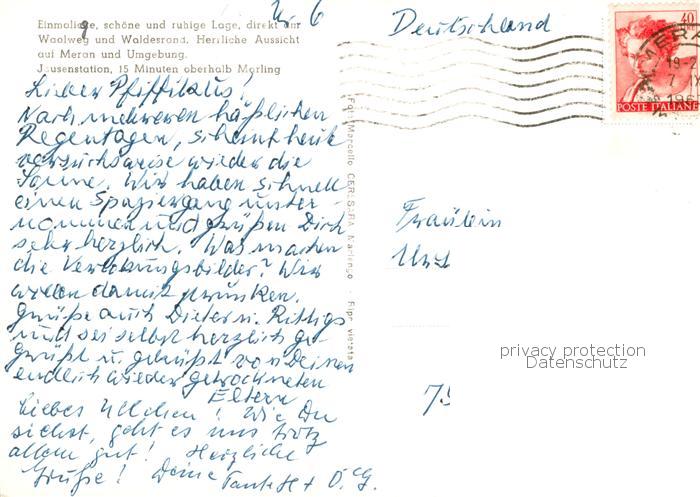 Einmalige, schöne und ruhige Lage, direkt am
Waalweg und Waldesrand. Herrliche Aussicht
auf Meran und Umgebung.
Jausenstation, 15 Minuten oberhalb Marling
Nr. 6
Deutschland
40
POSTE ITALIANE
MERA
Lieber Pfiffikus!
Nach mehreren häßlichen
Regentagen, scheint heute
versuchsweise wieder die
Sonne. Wir haben schnell
einen Spaziergang unter-
nommen und grüßen Dich
sehr herzlich. Was machen
die Verlobungsbilder? Wir
wollen damit
Grüße auch Dieter u.
und sei selbst herzlich ge-
grüßt u. geküßt von Deinen
endlich wieder getrockneten
Eltern
Liebes Ullchen! Wie Du
siehst, geht es uns trotz
allem gut! Herzliche
Grüße! Deine Tante H + O. G.
Foto Marcello
Fräulein
privacy protection
Datenschutz